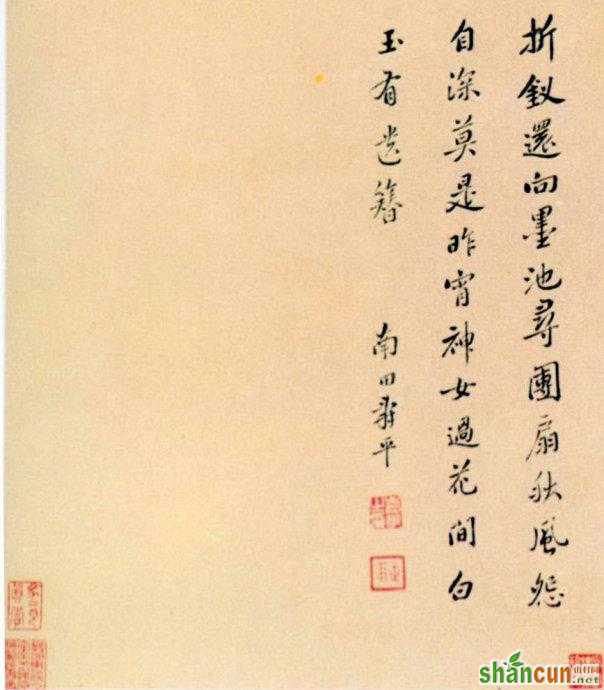 折釵還向墨池尋團扇秋風怨
自深莫是昨宵神女過花間白
玉有遺簪
南田壽平
shancun
山村网
.net